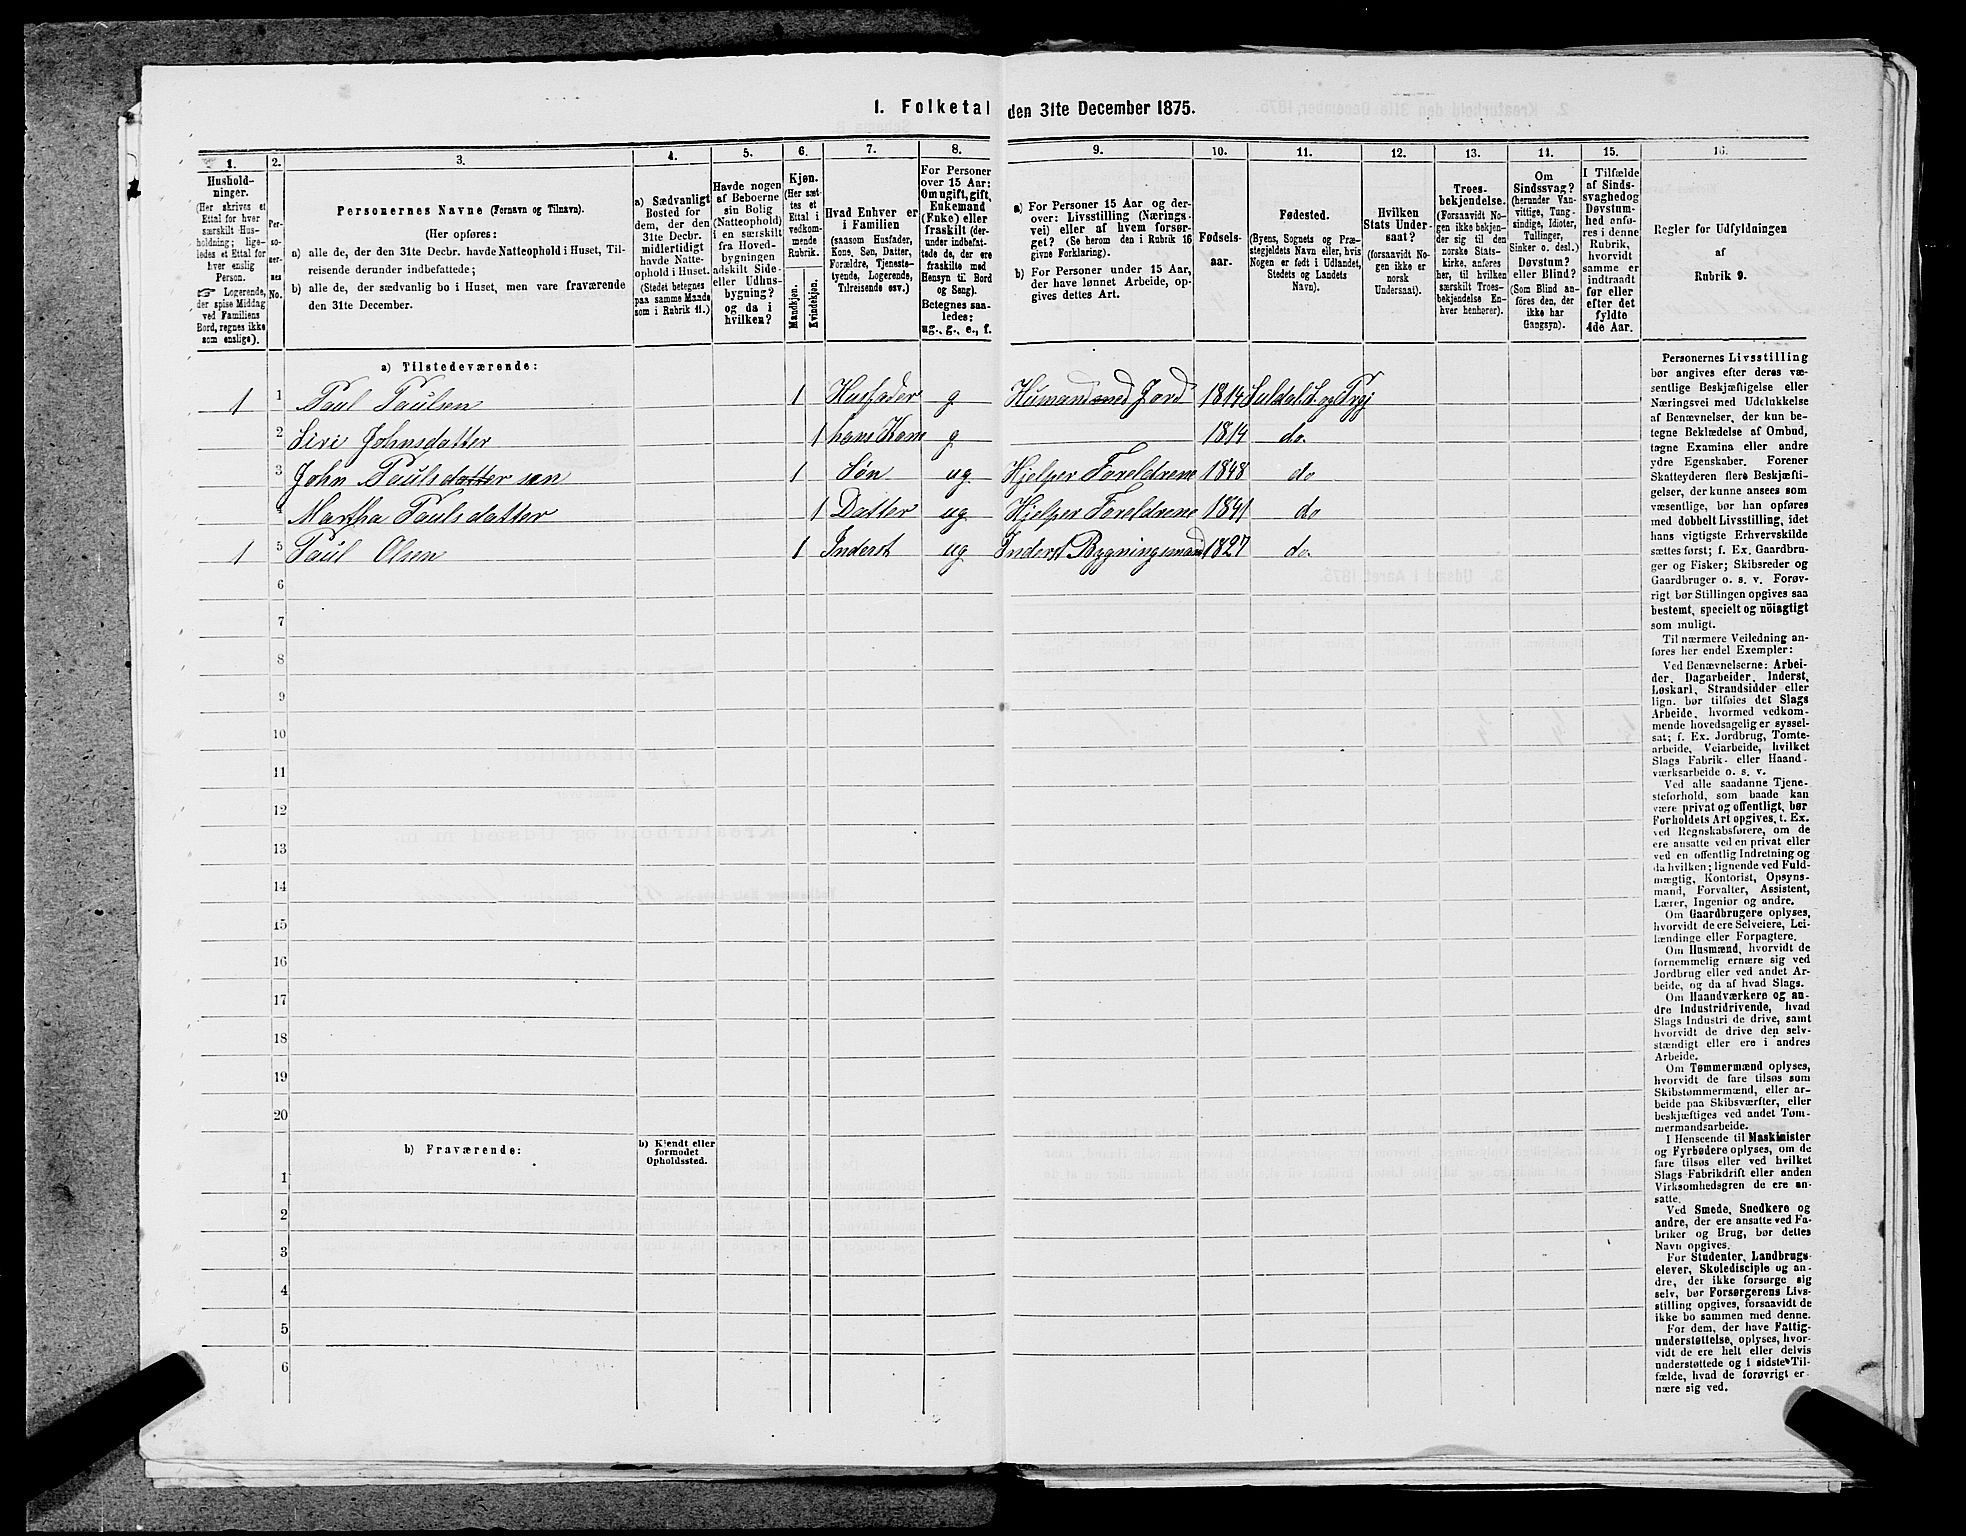 1. Folketal den 31te December 1875.
1. 2. 3. 4. 5. 6. 7. 8. 9. 10. 11. 12. 13. 14. 15. 16.
Hushold-
ninger.
(Her skrives et
Ettal for hver
særskilt Hus-
holdning; lige-
ledes et Ettal for
hver enslig
Person.
☞ Logerende,
der spise Middag
ved Familiens
Bord, regnes ikke
som enslige).
Per-
so-
ner-
nes
No.
Personernes Navne (Fornavn og Tilnavn).
(Her opføres:
a) alle de, der den 31te Decbr. havde Natteophold i Huset, Til-
reisende derunder indbefattede;
b) alle de, der sædvanlig bo i Huset, men vare fraværende
den 31te December.
a) Sædvanligt
Bosted for
dem, der den
31te Decbr.
midlertidigt
havde Natte-
ophold i Huset.
(Stedet betegnes
paa samme Maade
som i Rubrik 11.)
Havde nogen
af Beboerne
sin Bolig
(Natteophold)
i en særskilt
fra Hoved-
bygningen
adskilt Side-
eller Udhus-
bygning?
og da i
hvilken?
Kjøn.
(Her sæt-
tes et
Ettal i
vedkom-
mende
Rubrik.
Mandkjøn.
Kvindekjøn.
Hvad Enhver er
i Familien
(saasom Husfader,
Kone, Søn, Datter,
Forældre, Tjeneste-
tyende, Logerende,
Tilreisende osv.)
For Personer
over 15 Aar:
Om ugift, gift,
Enkemand
(Enke) eller
fraskilt (der-
under indbefat-
tede de, der ere
fraskilte med
Hensyn til Bord
og Seng).
Betegnes saa-
ledes:
ug., g., e., f.
a) For Personer 15 Aar og der-
over: Livsstilling (Nærings-
vei) eller af hvem forsør-
get? (Se herom den i Rubrik 16
givne Forklaring).
b) For Personer under 15 Aar,
der have lønnet Arbeide, op-
gives dettes Art.
Fødsels-
aar.
Fødested.
(Byens, Sognets og Præ-
stegjeldets Navn eller, hvis
Nogen er født i Udlandet,
Stedets og Landets
Navn).
Hvilken
Stats Under-
saat?
(forsaavidt No-
gen ikke er
norsk
Undersaat).
Troes-
bekjendelse.
(Forsaavidt No-
gen ikke bekjen-
der sig til den
norske Stats-
kirke, anføres
her, til hvilken
særskilt Troes-
bekjendelse En-
hver henhører).
Om
Sindssvag?
(herunder Van-
vittige, Tung-
sindige, Idioter,
Tullinger,
Sinker o. desl.)
Døvstum?
eller Blind?
(Som Blind an-
føres den, der
ikke har
Gangsyn).
I Tilfælde
af Sinds-
svaghed og
Døvstum-
hed anfø-
res i denne
Rubrik,
hvorvidt
samme er
indtraadt
før eller
efter det
fyldte
4de Aar.
Regler for Udfyldningen
af
Rubrik 9.
a) Tilstedeværende:
1 1 Paul Paulsen 1 Husfader g Husmand med Jord 1814 Suldal S. og Prgj
2 Siri Johnsdatter 1 hans Kone g 1814 do.
3 John Paulsdatter søn 1 Søn ug Hjelper Foreldrene 1848 do
4 Martha Paulsdatter 1 Datter ug Hjelper Foreldrene 1841 do
1 5 Paul Olsen 1 Inderst ug Inderst Bygningsmand 1827 do.
6
7
8
9
10
11
12
13
14
15
16
17
18
19
20
b) Fraværende:
b) Kjendt eller
formodet
Opholdssted.
1
2
3
4
5
6
Personernes Livsstilling
bør angives efter deres væ-
sentlige Beskjæftigelse eller
Næringsvei med Udelukkelse
af Benævnelser, der kun be-
tegne Beklædelse af Ombud,
tagne Examina eller andre
ydre Egenskaber. Forener
Skatteyderen flere Beskjæfti-
gelser, der kunne ansees som
væsentlige, bør han opføres
med dobbelt Livsstilling, idet
hans vigtigste Erhvervskilde
sættes først; f. Ex. Gaardbru-
ger og Fisker; Skibsreder og
Gaardbruger o. s. v. Forøv-
rigt bør Stillingen opgives saa
bestemt, specielt og nöiagtigt
som muligt.
Til nærmere Veiledning an-
føres her endel Exempler:
Ved Benævnelserne: Arbei-
der, Dagarbeider, Inderst,
Løskarl, Strandsidder eller
lign. bør tilføies det Slags
Arbeide, hvormed vedkom-
mende hovedsagelig er syssel-
sat; f. Ex. Jordbrug, Tomte-
arbeide, Veiarbeide, hvilket
Slags Fabrik- eller Haand-
værksarbeide o. s. v.
Ved alle saadanne Tjene-
steforhold, som baade kan
være privat og offentligt, bør
Forholdets Art opgives, t. Ex.
ved Regnskabsførere, om de
ere ansatte ved en privat eller
ved en offentlig Indretning og
da hvilken; lignende ved Fuld-
mægtig, Kontorist, Opsyns-
mand, Forvalter, Assistent,
Lærer, Ingeniør og andre.
Om Gaardbrugere oplyses,
hvorvidt de ere Selveiere, Lei-
lændinge eller Forpagtere.
Om Husmænd, hvorvidt de
fornemmelig ernære sig ved
Jordbrug eller ved andet Ar-
beide, og da af hvad Slags.
Om Haandværkere og an-
dre Industridrivende, hvad
Slags Industri de drive, samt
hvorvidt de drive den selv-
stændigt eller ere i andres
Arbeide.
Om Tømmermænd oplyses,
hvorvidt de fare tilsøs som
Skibstømmermænd, eller ar-
beide paa Skibsværfter, eller
beskjæftiges ved andet Tøm-
mermandsarbeide.
I Henseende til Maskinister
og Fyrbødere oplyses, om de
fare tilsøs eller ved hvilket
Slags Fabrikdrift eller anden
Virksomhedsgren de ere an-
satte.
Ved Smede, Snedkere og
andre, der ere ansatte ved Fa-
briker og Brug, bør dettes
Navn opgives.
For Studenter, Landbrugs-
elever, Skoledisciple og an-
dre, der ikke forsørge sig
selv, bør Forsørgerens Livs-
stilling opgives, forsaavidt de
ikke bo sammen med denne.
For dem, der have Fattig-
understøttelse, oplyses, hvor-
vidt de ere helt eller delvis
understøttede og i sidste Til-
fælde, hvad de forøvrigt er-
nære sig ved.